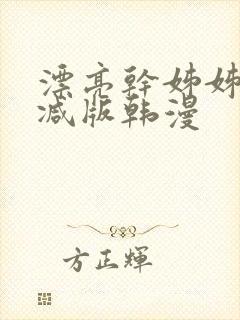 漂亮幹姊姊
减版韩漫
方正輝